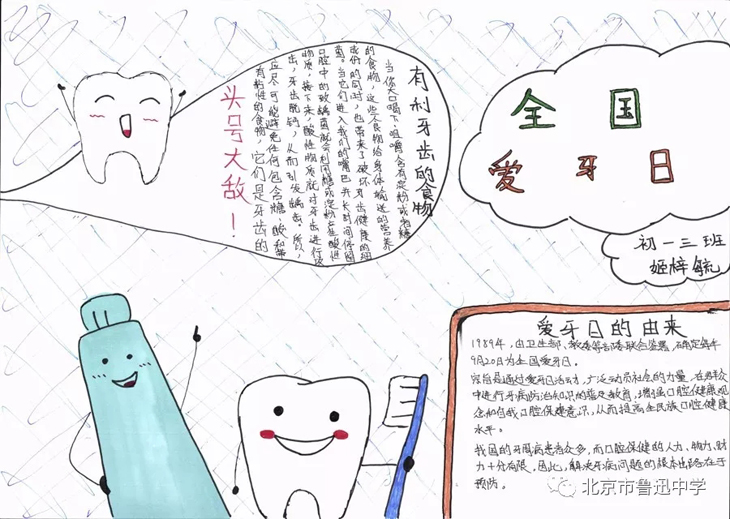 全国
爱牙日
初一三班
姬梓毓
有利牙齿的食物
当你大口喝下、咀嚼含有淀粉或者糖
的食物，这些食物给身体输送的营养
成份的同时，也带来了破坏牙齿健康的细
菌。当它们进入我们的嘴巴并长时间停留
口腔中的致龋菌就会利用糖或淀粉产生酸性
物质，接下来，酸性物质就对牙齿进行溶
出，牙齿脱钙，从而引发龋齿。所以，
应尽可能避免任何包含糖、酸和带
有粘性的食物，它们是牙齿的
头号大敌！
爱牙日的由来
1989年，由卫生部、教委等部委联合签署，确定每年
9月20日为全国爱牙日。
宗旨是通过爱牙日活动，广泛动员社会的力量，在群众
中进行牙病防治知识的普及教育，增强口腔健康观
念和自我口腔保健意识，从而提高全民族口腔健康
水平。
我国的牙病患者众多，而口腔保健的人力、物力、财
力十分有限，因此，解决牙病问题的根本出路在于
预防。
北京市鲁迅中学